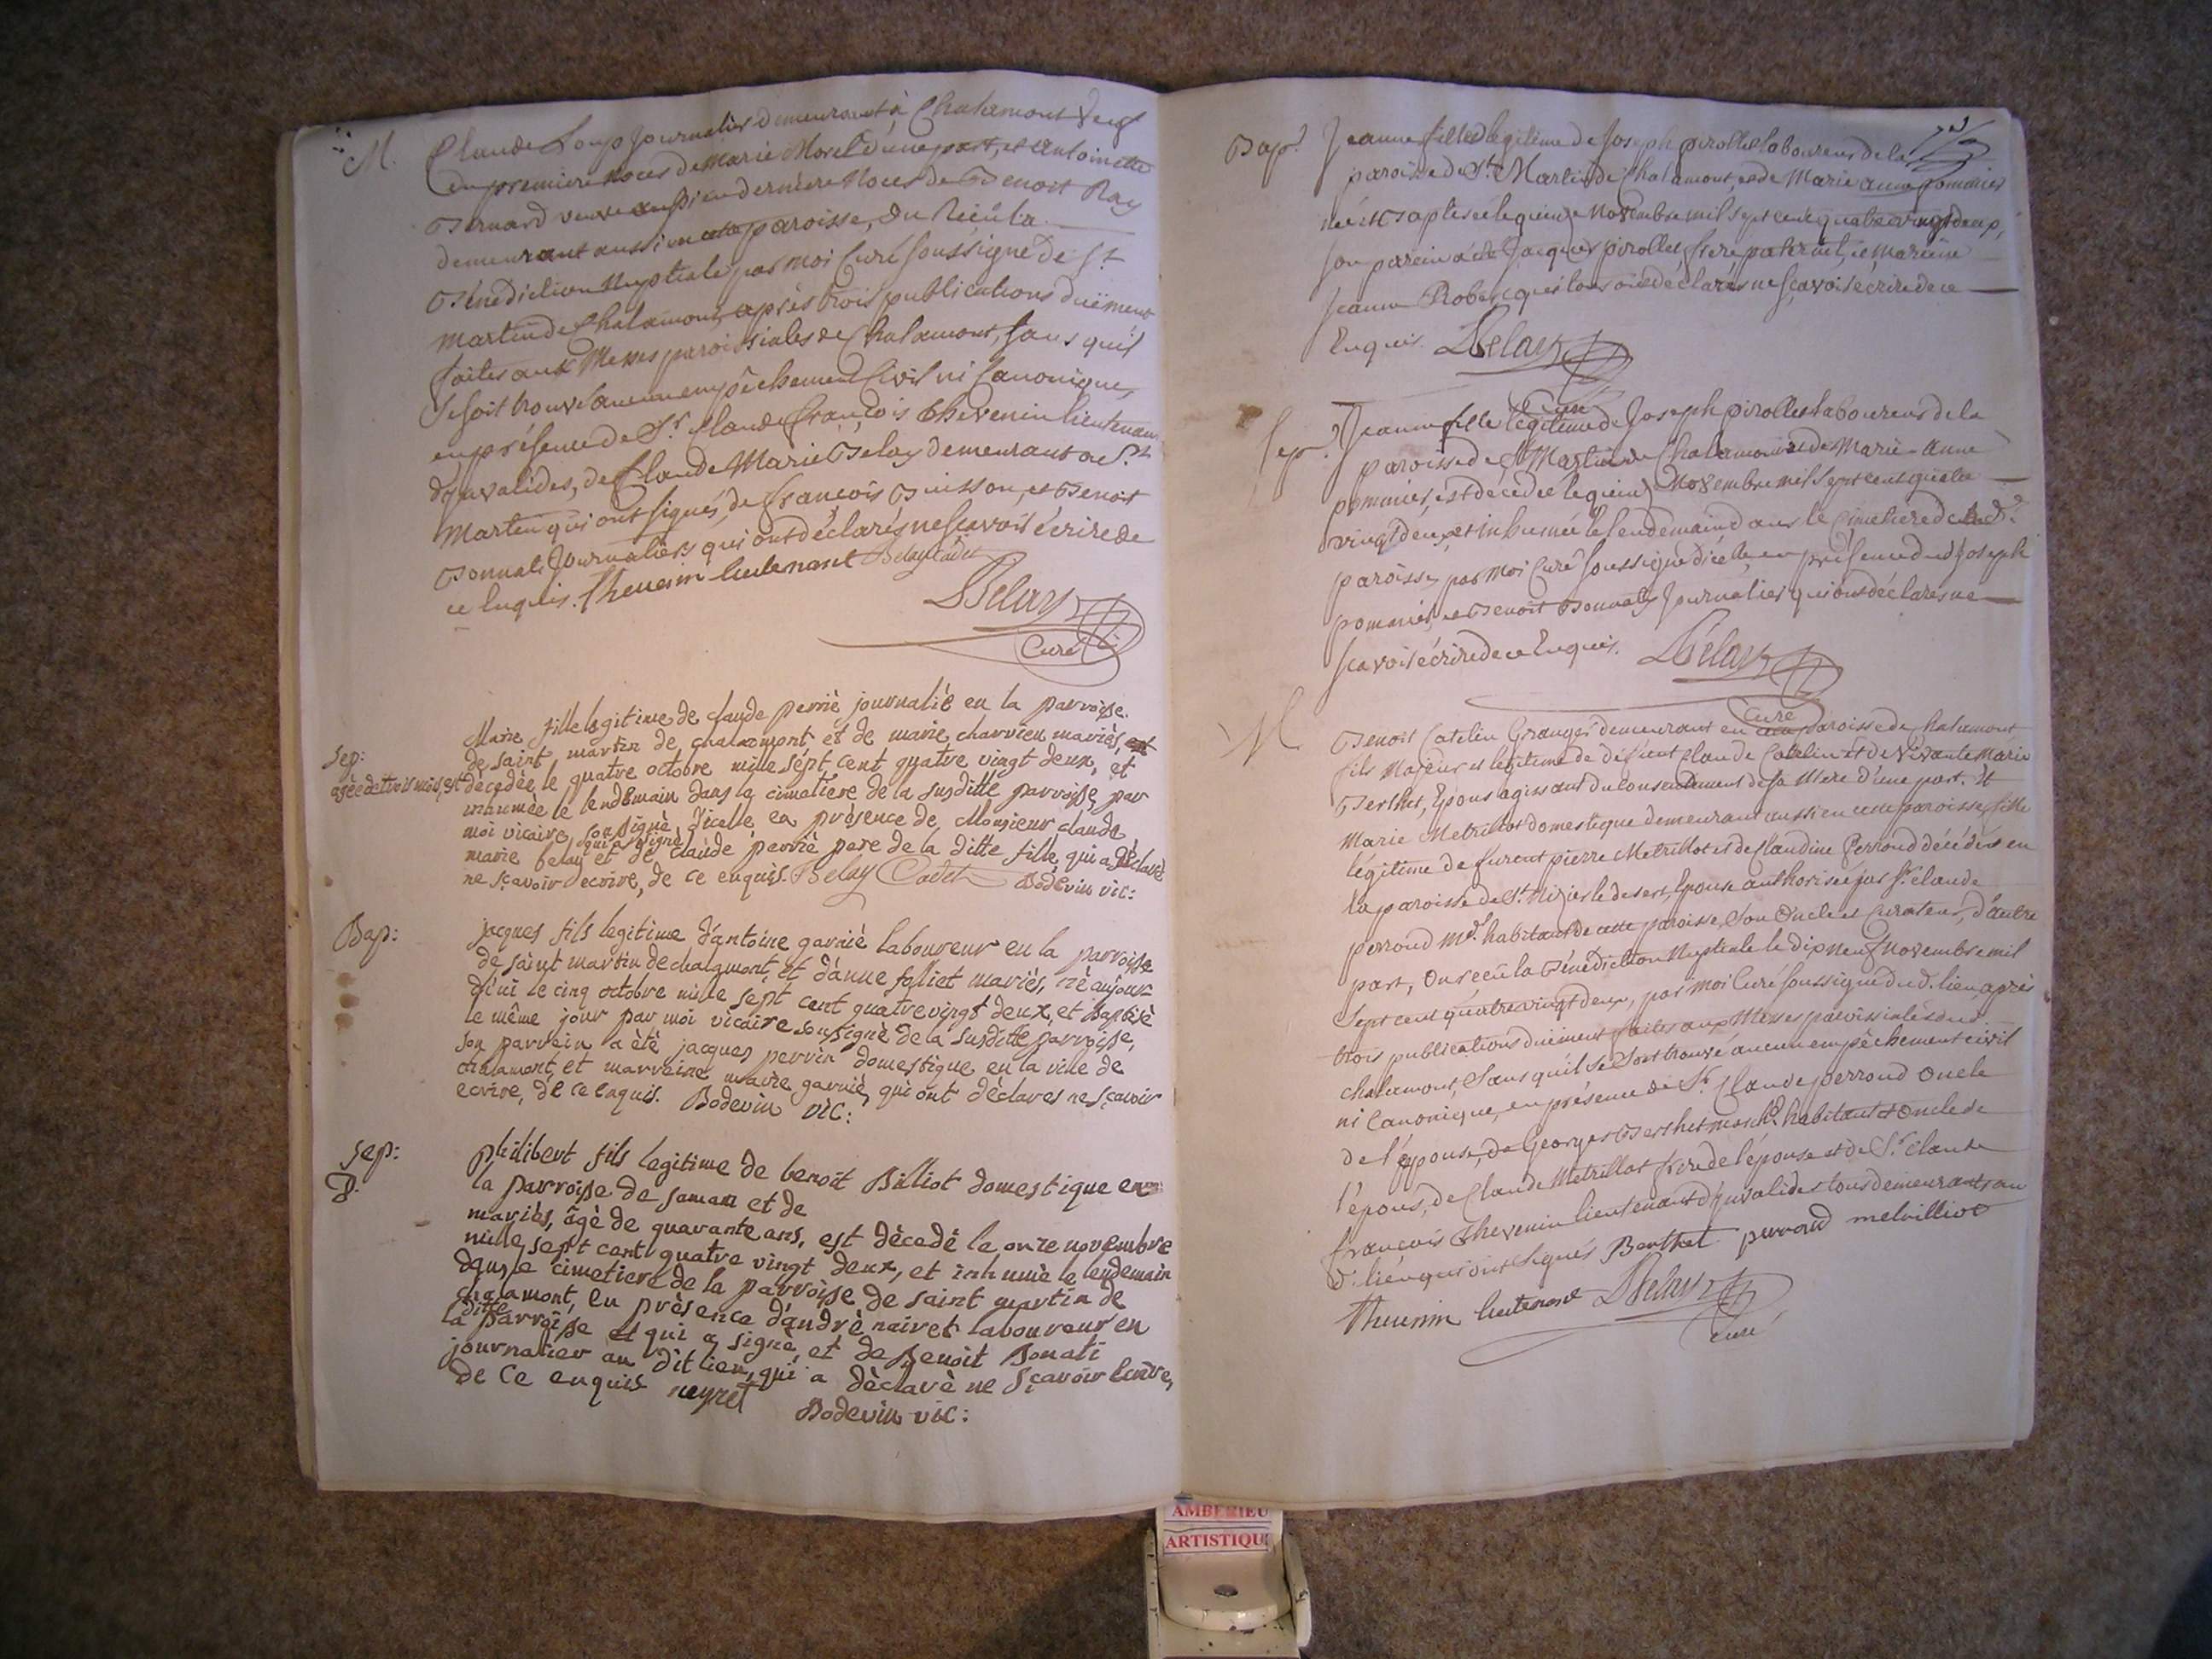 M.
Claude Loup Journalier demeurant à Chalamont Veuf
en premiere Noces de Marie Morel d'une part, et Antoinette
Bernard veuve aussi en derniere Noces de Benoit Ray
demeurant aussi en cette paroisse, On Reçû la
Bénédiction Nuptiale par moi Curé soussigné de St.
Martin de Chalamont, après trois publications duëment
faites aux Messes paroissiales de Chalamont, sans qu'il
se soit trouvé aucun empêchement Civil ni Canonique,
en présence de Sr. Claude François Thevenin lieutenant
d'invalides, de Claude Marie Belay demeurant a St.
Martin qui ont signés, de François Buisson, et Benoit
Bonnati Journaliers qui ont déclarés ne scavoir écrire de
ce Enquis. Thevenin lieutenant Belay Cadet
Belay
Curé
Sep:
Marie fille legitime de claude perriè journaliè en la parroisse
de saint martin de chalamont et de marie charvieu mariès,
agèe de trois mois, est dècedèe le quatre octobre mille sept cent quatre vingt deux, et
inhumèe le lendemain dans le cimetiere de la susditte parroisse par
moi vicaire soussignè d'icelle en prèsence de Monsieur claude
qui a signè
marie belay et de claude perriè pere de la ditte fille qui a dèclarè
ne sçavoir ecrire, de ce enquis. Belay Cadet Bodevin vic:
Bap:
jacques fils legitime d'antoine garniè laboureur en la parroisse
de saint martin de chalamont et d'anne folliet mariès, nè aujour
d'ui le cinq octobre mille sept cent quatre vingt deux, et Baptisè
le même jour par moi vicaire soussignè de la susditte parroisse,
son parrain a ètè jacques pervin domestique en la ville de
chalamont, et marreine marie garniè, qui ont dèclares ne sçavoir
ecrire, de ce enquis. Bodevin vic:
Sep:
philibert fils legitime de benoît Billiot domestique en
la parroisse de saman et de
mariès, âgè de quarante ans, est dècedè le onze novembre
mille sept cent quatre vingt deux, et inhumè le lendemain
dans le cimetiere de la parroisse de saint martin de
chalamont, en prèsence d'andrè nairet laboureur en
ditte
la parroisse et qui a signè, et de Benoit Bonati
journalier au dit lieu, qui a dèclarè ne sçavoir ècrire,
de ce enquis neyret Bodevin vic:
Bap.
Jeanne fille légitime de Joseph pirollet laboureur de la
paroisse de St. Martin de Chalamont, et de Marie anne pommier
née et Baptisée le quinze Novembre mil sept cent quatre vingt deux,
son parein a été Jacques pirollet frere paternel, et Mareine
Jeanne Robert, qui tous ont déclarés ne scavoir écrire de ce
Enquis. Belay
Curé
Sep.
Jeanne fille légitime de Joseph Pirollet laboureur de la
paroisse de St Martin de Chalamont et de Marie-Anne
pommier, est décédée le quinze Novembre mil sept cent quatre
vingt deux, et inhumée le lendemain dans le Cimetiere de lad.
paroisse, par Moi Curé soussigné d'icelle, en présence de Joseph
pommier, et Benoit Bonnati Journalier qui ont déclarés ne
scavoir écrire de ce Enquis. Belay
Curé
M
Benoit Catelin Granger demeurant en paroisse de Chalamont
fils Majeur et légitime de défunt Claude Catelin et de Vivante Marie
Berthet, Epoux agissant du Consentement de sa Mere d'une part. Et
Marie Metrillot domestique demeurant aussi en cette paroisse, fille
légitime de furent pierre Metrillot et de Claudine Perroud décédés en
la paroisse de St. Nizier le desert, Epouse authorisée par Sr. Claude
perroud Md. habitant de cette paroisse, Son Oncle et Curateur, d'autre
part, On reçû la Bénédiction Nuptiale le dix Neuf Novembre mil
Sept cent quatre vingt deux, par moi Curé soussigné dud. lieu, après
trois publications duëment faites aux Messes paroissiales dud.
chalamont, Sans qu'il se soit trouvé aucun empêchement civil
ni Canonique, en présence de Sr. Claude perroud oncle
de l'épouse, de Georges Berthet march. habitant et Oncle de
l'époux, de Claude Metrillot frere de l'épouse et de Sr. Claude
françois Thevenin lieutenant d'invalides tous demeurants au
d. lieu qui ont Signés Berthet perroud metrilliot
Thevenin lieutenant Belay
curé
AMBERIEU
ARTISTIQU